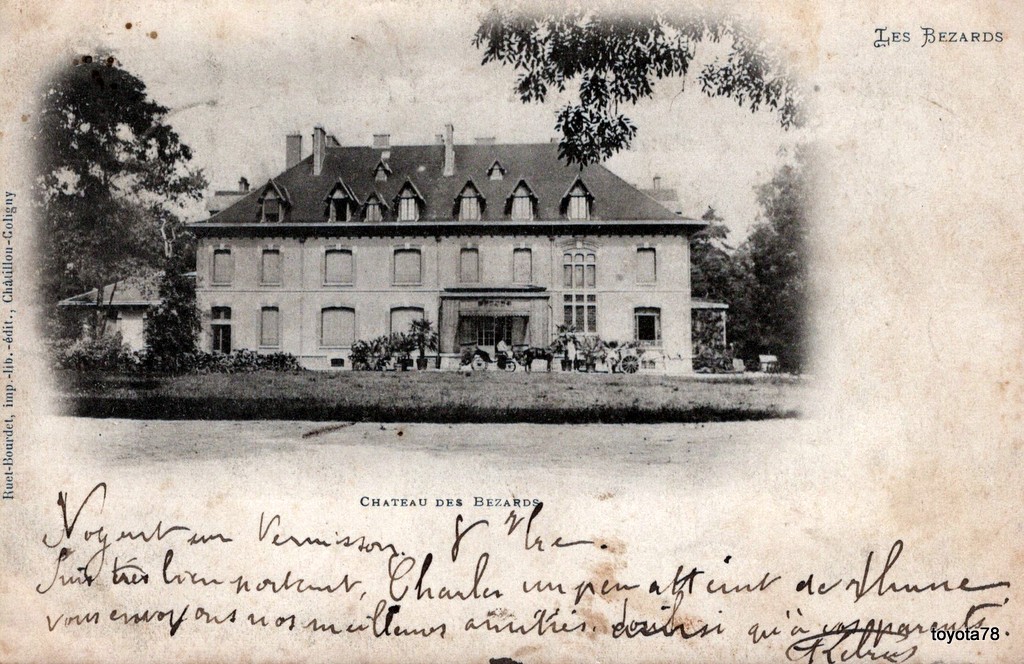 LES BEZARDS
Ruet-Bourdet, imp.-lib.-édit., Châtillon-Coligny
CHATEAU DES BEZARDS
Nogent sur Vernisson. 8 7bre.
Suis très bien portant, Charles un peu atteint de rhume
vous envoyons nos meilleures amitiés. ainsi qu'à vos parents.
toyota78